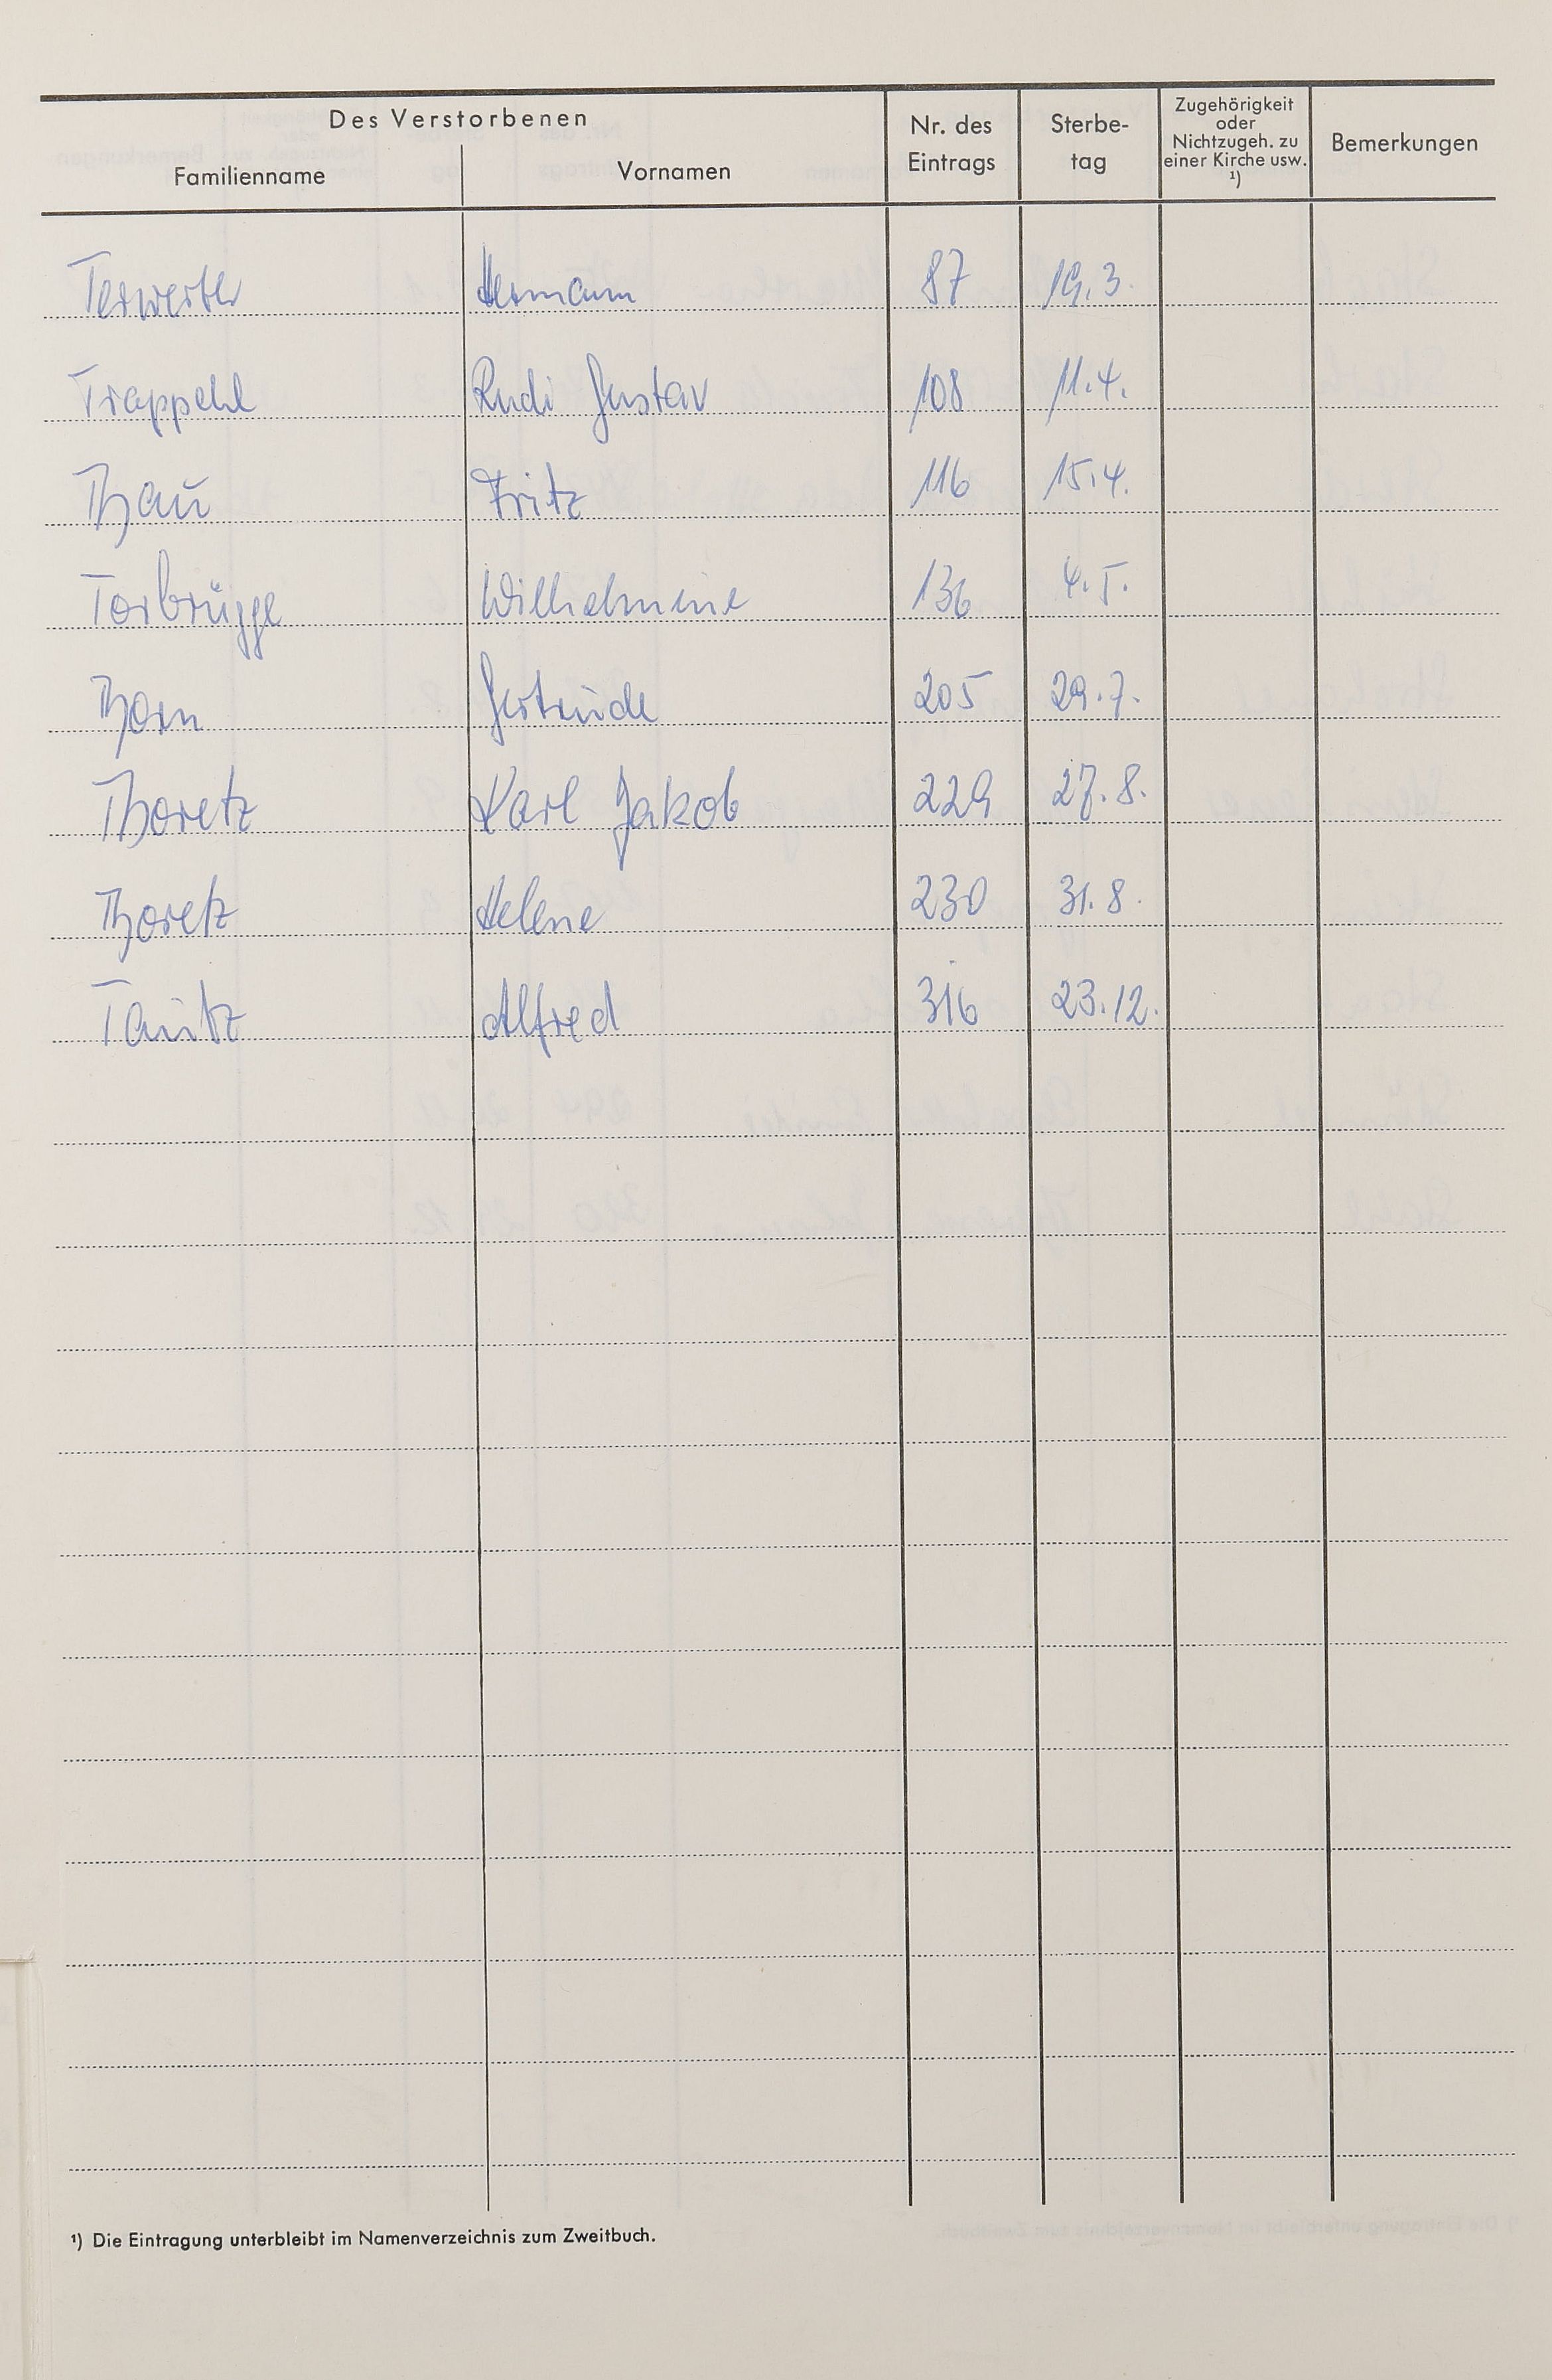 Des Verstorbenen
Familienname Vornamen Nr. des Eintrags Sterbe-tag Zugehörigkeit oder Nichtzugeh. zu einer Kirche usw. ¹) Bemerkungen
Hermann 87 19.3.
Trappehl Rudi Gustav 108 11.4.
Thau Fritz 116 15.4.
Torbrügge Wilhelmine 136 4.5.
Thorn Gertrude 205 29.7.
Thoretz Karl Jakob 229 27.8.
Thoretz Helene 230 31.8.
Tautz Alfred 316 23.12.
¹) Die Eintragung unterbleibt im Namenverzeichnis zum Zweitbuch.